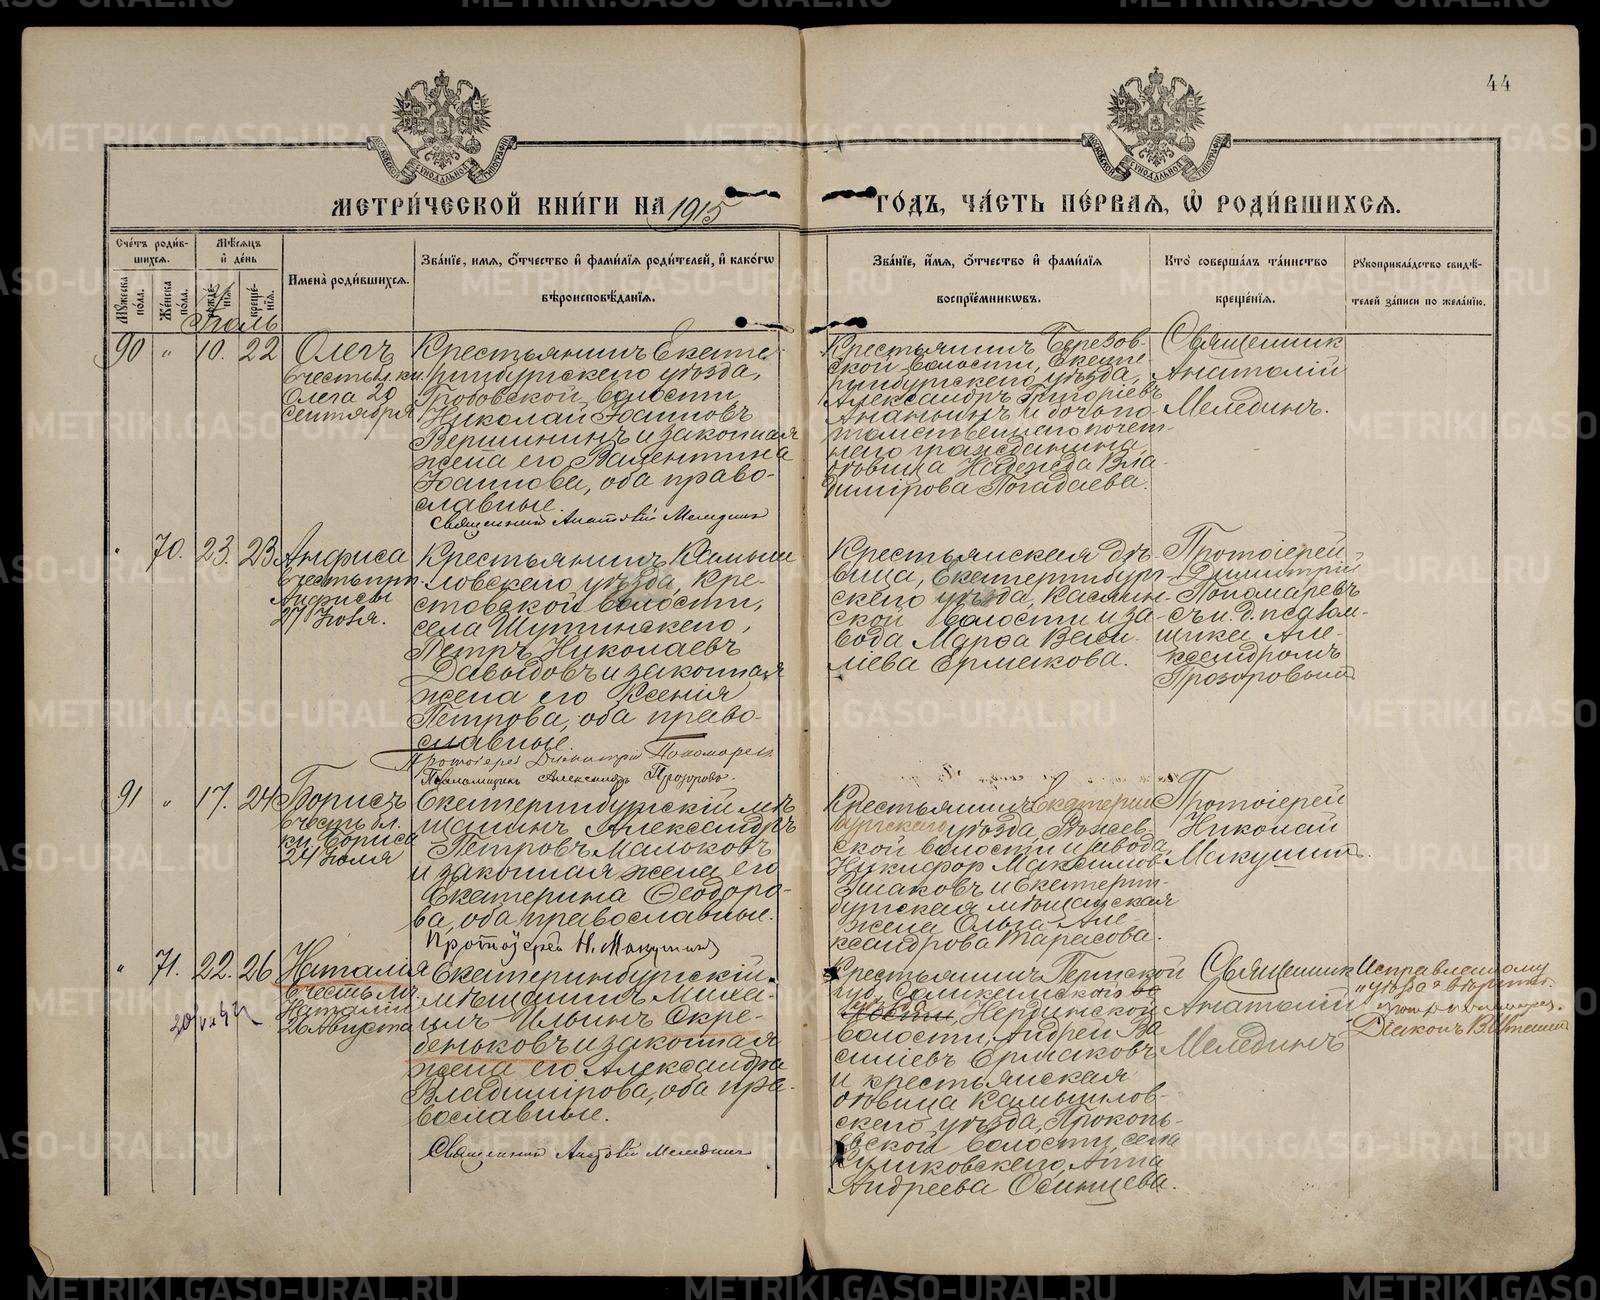 44
МЕТРИ́ЧЕСКОЙ КНИ́ГИ НА 1915 ГО́ДЪ, ЧА́СТЬ ПЕ́РВАЯ, Ѡ҆ РОДИ́ВШИХСЯ.
Сче́тъ роди́вшихся.
Мꙋ́жеска по́ла.
Же́нска по́ла.
Мѣ́сяцъ и҆ де́нь
рожде́нїя.
креще́нїя.
Имена̀ роди́вшихся.
Зва́нїе, имя, ѻ҆́тчество и҆ фами́лїя роди́телей, и҆ како́гѡ вѣроисповѣ́данїя.
Зва́нїе, и҆́мя, ѻ҆́тчество и҆ фами́лїя воспрїе́мникѡвъ.
Кто̀ соверша́лъ та́инство креще́нїя.
Рꙋкоприкла́дство свидѣ́телей за́писи по жела́нїю.
Іюль
90 " 10. 22
Олегъ
въ честь бл. кн.
Олега 20
сентября
Крестьянинъ Екате-
ринбургскаго уѣзда,
Гробовской волости
Николай Іоанновъ
Вершининъ и законная
жена его Валентина
Іоаннова, оба право-
славные.
Священникъ Анатолій Мелединъ
Крестьянинъ Березов-
ской волости, Екате-
ринбургскаго уѣзда,
Александръ Григоріевъ
Ананьинъ и дочь по-
томственнаго почет-
наго гражданина,
дѣвица Надежда Вла-
димірова Погадаева.
Священник
Анатолій
Мелединъ.
" 70. 23. 23
Анфиса
въ честь прп.
Анфисы
27 Іюля.
Крестьянинъ Камыш-
ловскаго уѣзда, Кре-
стовской волости,
села Шутинскаго,
Петръ Николаевъ
Давыдовъ и законная
жена его Ксенія
Петрова, оба право-
славные.
Протоіерей Димитрій Пономаревъ
Псаломщикъ Александръ Прозоровъ.
Крестьянская дѣ-
вица, Екатеринбург-
скаго уѣзда, Каслин-
ской волости и за-
вода Марфа Васи-
ліева Ермакова.
Протоіерей
Димитрій
Пономаревъ
съ и. д. псалом-
щика Але-
ксандромъ
Прозоровымъ
91 " 17. 24
Борисъ
въ честь бл.
кн. Бориса
24 Іюля
Екатеринбургскій мѣ-
щанинъ Александръ
Петровъ Мальковъ
и законная жена его
Екатерина Ѳеодоро-
ва, оба православные.
Протоіерей Н. Макушинъ
Крестьянинъ Екатерин
бургскаго уѣзда,
ской волости и завода,
Никифор Максимов
и Екатерин-
бургская мѣщанская
жена Ольга Але-
ксандрова Тарасова.
Протоіерей
Николай
Макушинъ.
" 71. 22. 26
Наталія
въ честь мч.
Наталіи
26 Августа
Екатеринбургскій
мѣщанинъ Миха-
илъ Ильинъ Скре-
беньковъ и законная
жена его Александра
Владимірова, оба пра-
вославные.
Священникъ Анатолій Мелединъ
Крестьянинъ Пермской
губ. Соликамскаго
Нердинской
волости, Андрей Ва
силіевъ Ермаковъ
и крестьянская
дѣвица Камышлов-
скаго уѣзда, Прокопь-
евской волости, села
Куликовскаго, Анна
Андреева Осинцева.
Священник
Анатолій
Мелединъ
Исправленному
"уѣзда"
Діаконъ